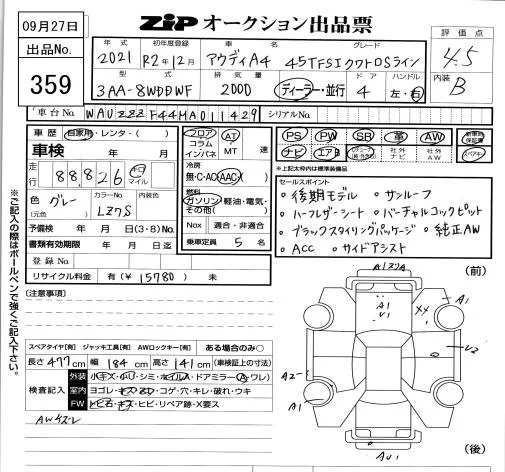 09月27日
出品No.
359
ZIP オークション出品票
評価点
4.5
内装 B
年式 2021
初年度登録 R2年12月
車名 アウディA4
グレード 45TFSIクワトロSライン
型式 3AA-8WDDWF
排気量 2000
ディーラー・並行
ドア 4
ハンドル 左・右
車台No. WAUZZZF44MA011429
シリアルNo.
車歴 自家用・レンタ・( )
車検 年 月
走行 88,826 キロ マイル
色 グレー
(元色)
カラーNo. LZ7S
内装色
予備検 年 月 日(3・8)No.
書類有効期限 年 月 日迄
登録No.
リサイクル料金 有(¥ 15780 ) 未
フロア コラム インパネ
AT MT 速
冷房
無・C・AC(AAC)
燃料
ガソリン・軽油・電気・その他( )
Nox 適合・非適合
乗車定員 5 名
PS PW SR 革 AW
ナビ エアB
社外ナビ
社外AW
スペアキー
※上記太枠内は標準装備品
セールスポイント
・後期モデル ・サンルーフ
・ハーフレザーシート ・バーチャルコックピット
・ブラックスタイリングパッケージ ・純正AW
・ACC ・サイドアシスト
(注意事項)
スペアタイヤ[有] ジャッキ工具[有] AWロックキー[有] ある場合のみ○
長さ 477cm 幅 184cm 高さ 141cm (車検証上の寸法)
検査記入
外装 小キズ・小U・シミ・ホイルA・ドアミラー(A・ワレ)
室内 ヨゴレ・キズ・スレ・コゲ・穴・キレ・破れ・ウキ
FW トビ石・キズ・ヒビ・リペア跡・X要ス
AWガズレ
(前)
A1
U1
XX
A1
U2
A2
A1
AU1
(後)
※ご記入の際はボールペンで強くご記入下さい。